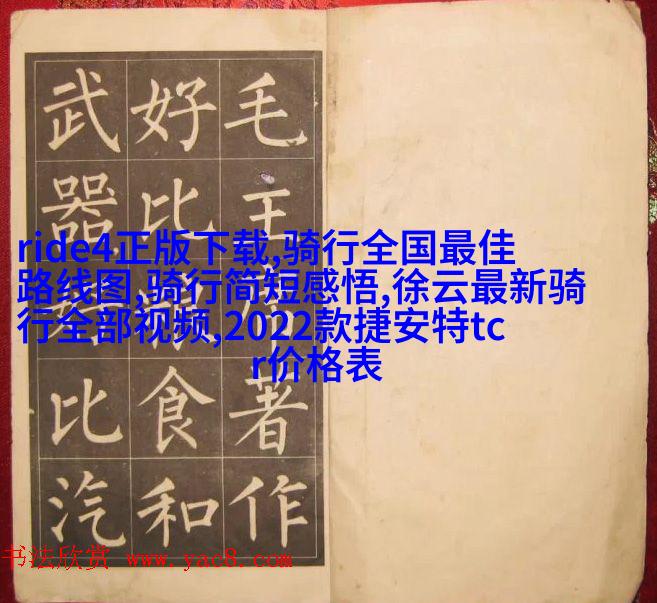 毛主席著作
好比粮食和
武器比汽
ride4正版下载,骑行全国最佳
路线图,骑行简短感悟,徐云最新骑
行全部视频,2022款捷安特tc
r价格表
书法欣赏 www.yac8.com